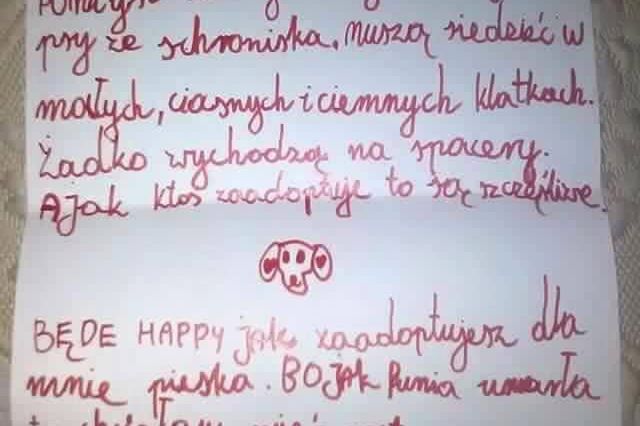 psy ze schroniska. muszą siedzieć w
małych, ciasnych i ciemnych klatkach.
Żadko wychodzą na spacery.
A jak ktoś zaadoptuje to są szczęśliwe.
BĘDE HAPPY jak zaadoptujesz dla
mnie pieska. BO jak Punia umarła